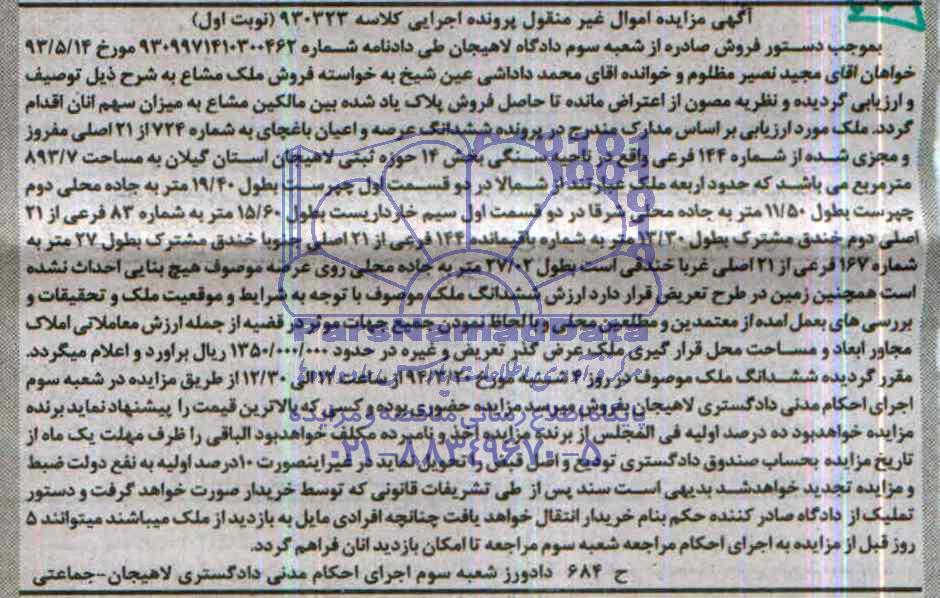 آگهی مزایده اموال غیر منقول پرونده اجرایی کلاسه ۹۳۰۳۲۳ (نوبت اول)
بموجب دستور فروش صادره از شعبه سوم دادگاه لاهیجان طی دادنامه شماره ۹۳۰۹۹۷۱۴۱۰۳۰۰۴۶۲ مورخ ۹۳/۵/۱۴
خواهان اقای مجید نصیر مظلوم و خوانده اقای محمد داداشی عین شیخ به خواسته فروش ملک مشاع به شرح ذیل توصیف
و ارزیابی گردیده و نظریه مصون از اعتراض مانده تا حاصل فروش پلاک یاد شده بین مالکین مشاع به میزان سهم انان اقدام
گردد. ملک مورد ارزیابی بر اساس مدارک مندرج در پرونده ششدانگ عرصه و اعیان باغچای به شماره ۷۲۴ از ۲۱ اصلی مفروز
و مجزی شده از شماره ۱۴۴ فرعی واقع در ناحیه سنگی بخش ۱۴ حوزه ثبتی لاهیجان استان گیلان به مساحت ۸۹۳/۷
مترمربع می باشد که حدود اربعه ملک عبارتند از شمالا در دو قسمت اول چپرست بطول ۱۹/۴۰ متر به جاده محلی دوم
چپرست بطول ۱۱/۵۰ متر به جاده محلی شرقا در دو قسمت اول سیم خارداریست بطول ۱۵/۶۰ متر به شماره ۸۳ فرعی از ۲۱
اصلی دوم خندق مشترک بطول ۱۳/۳۰ متر به شماره باقیمانده ۱۴۴ فرعی از ۲۱ اصلی جنوبا خندق مشترک بطول ۲۷ متر به
شماره ۱۶۷ فرعی از ۲۱ اصلی غربا خندقی است بطول ۲۷/۰۲ متر به جاده محلی روی عرصه موصوف هیچ بنایی احداث نشده
است همچنین زمین در طرح تعریض قرار دارد ارزش ششدانگ ملک موصوف با توجه به شرایط و موقعیت ملک و تحقیقات و
بررسی های بعمل امده از معتمدین و مطلعین محلی و با لحاظ نمودن جمیع جهات موثر در قضیه از جمله ارزش معاملاتی املاک
مجاور ابعاد و مساحت محل قرار گیری ملک عرض گذر تعریض و غیره در حدود ۱۳۵۰/۰۰۰/۰۰۰ ریال براورد و اعلام میگردد.
مقرر گردیده ششدانگ ملک موصوف در روز ۴ شنبه مورخ از ساعت ۱۲ الی ۱۲/۳۰ از طریق مزایده در شعبه سوم
اجرای احکام مدنی دادگستری لاهیجان بفروش میرسد مزایده حضوری بوده و کسی که بالاترین قیمت را پیشنهاد نماید برنده
مزایده خواهدبود ده درصد اولیه فی المجلس از برنده مزایده اخذ و نامبرده مکلف خواهدبود الباقی را ظرف مهلت یک ماه از
تاریخ مزایده بحساب صندوق دادگستری تودیع و اصل قبض را تحویل نماید در غیراینصورت ۱۰درصد اولیه به نفع دولت ضبط
و مزایده تجدید خواهدشد بدیهی است سند پس از طی تشریفات قانونی که توسط خریدار صورت خواهد گرفت و دستور
تملیک از دادگاه صادر کننده حکم بنام خریدار انتقال خواهد یافت چنانچه افرادی مایل به بازدید از ملک میباشند میتوانند ۵
روز قبل از مزایده به اجرای احکام مراجعه شعبه سوم مراجعه تا امکان بازدید انان فراهم گردد.
ح ۶۸۴ دادورز شعبه سوم اجرای احکام مدنی دادگستری لاهیجان-جماعتی
ParsNamadData
۰۲۱-۸۸۳۴۹۶۷۰-۵